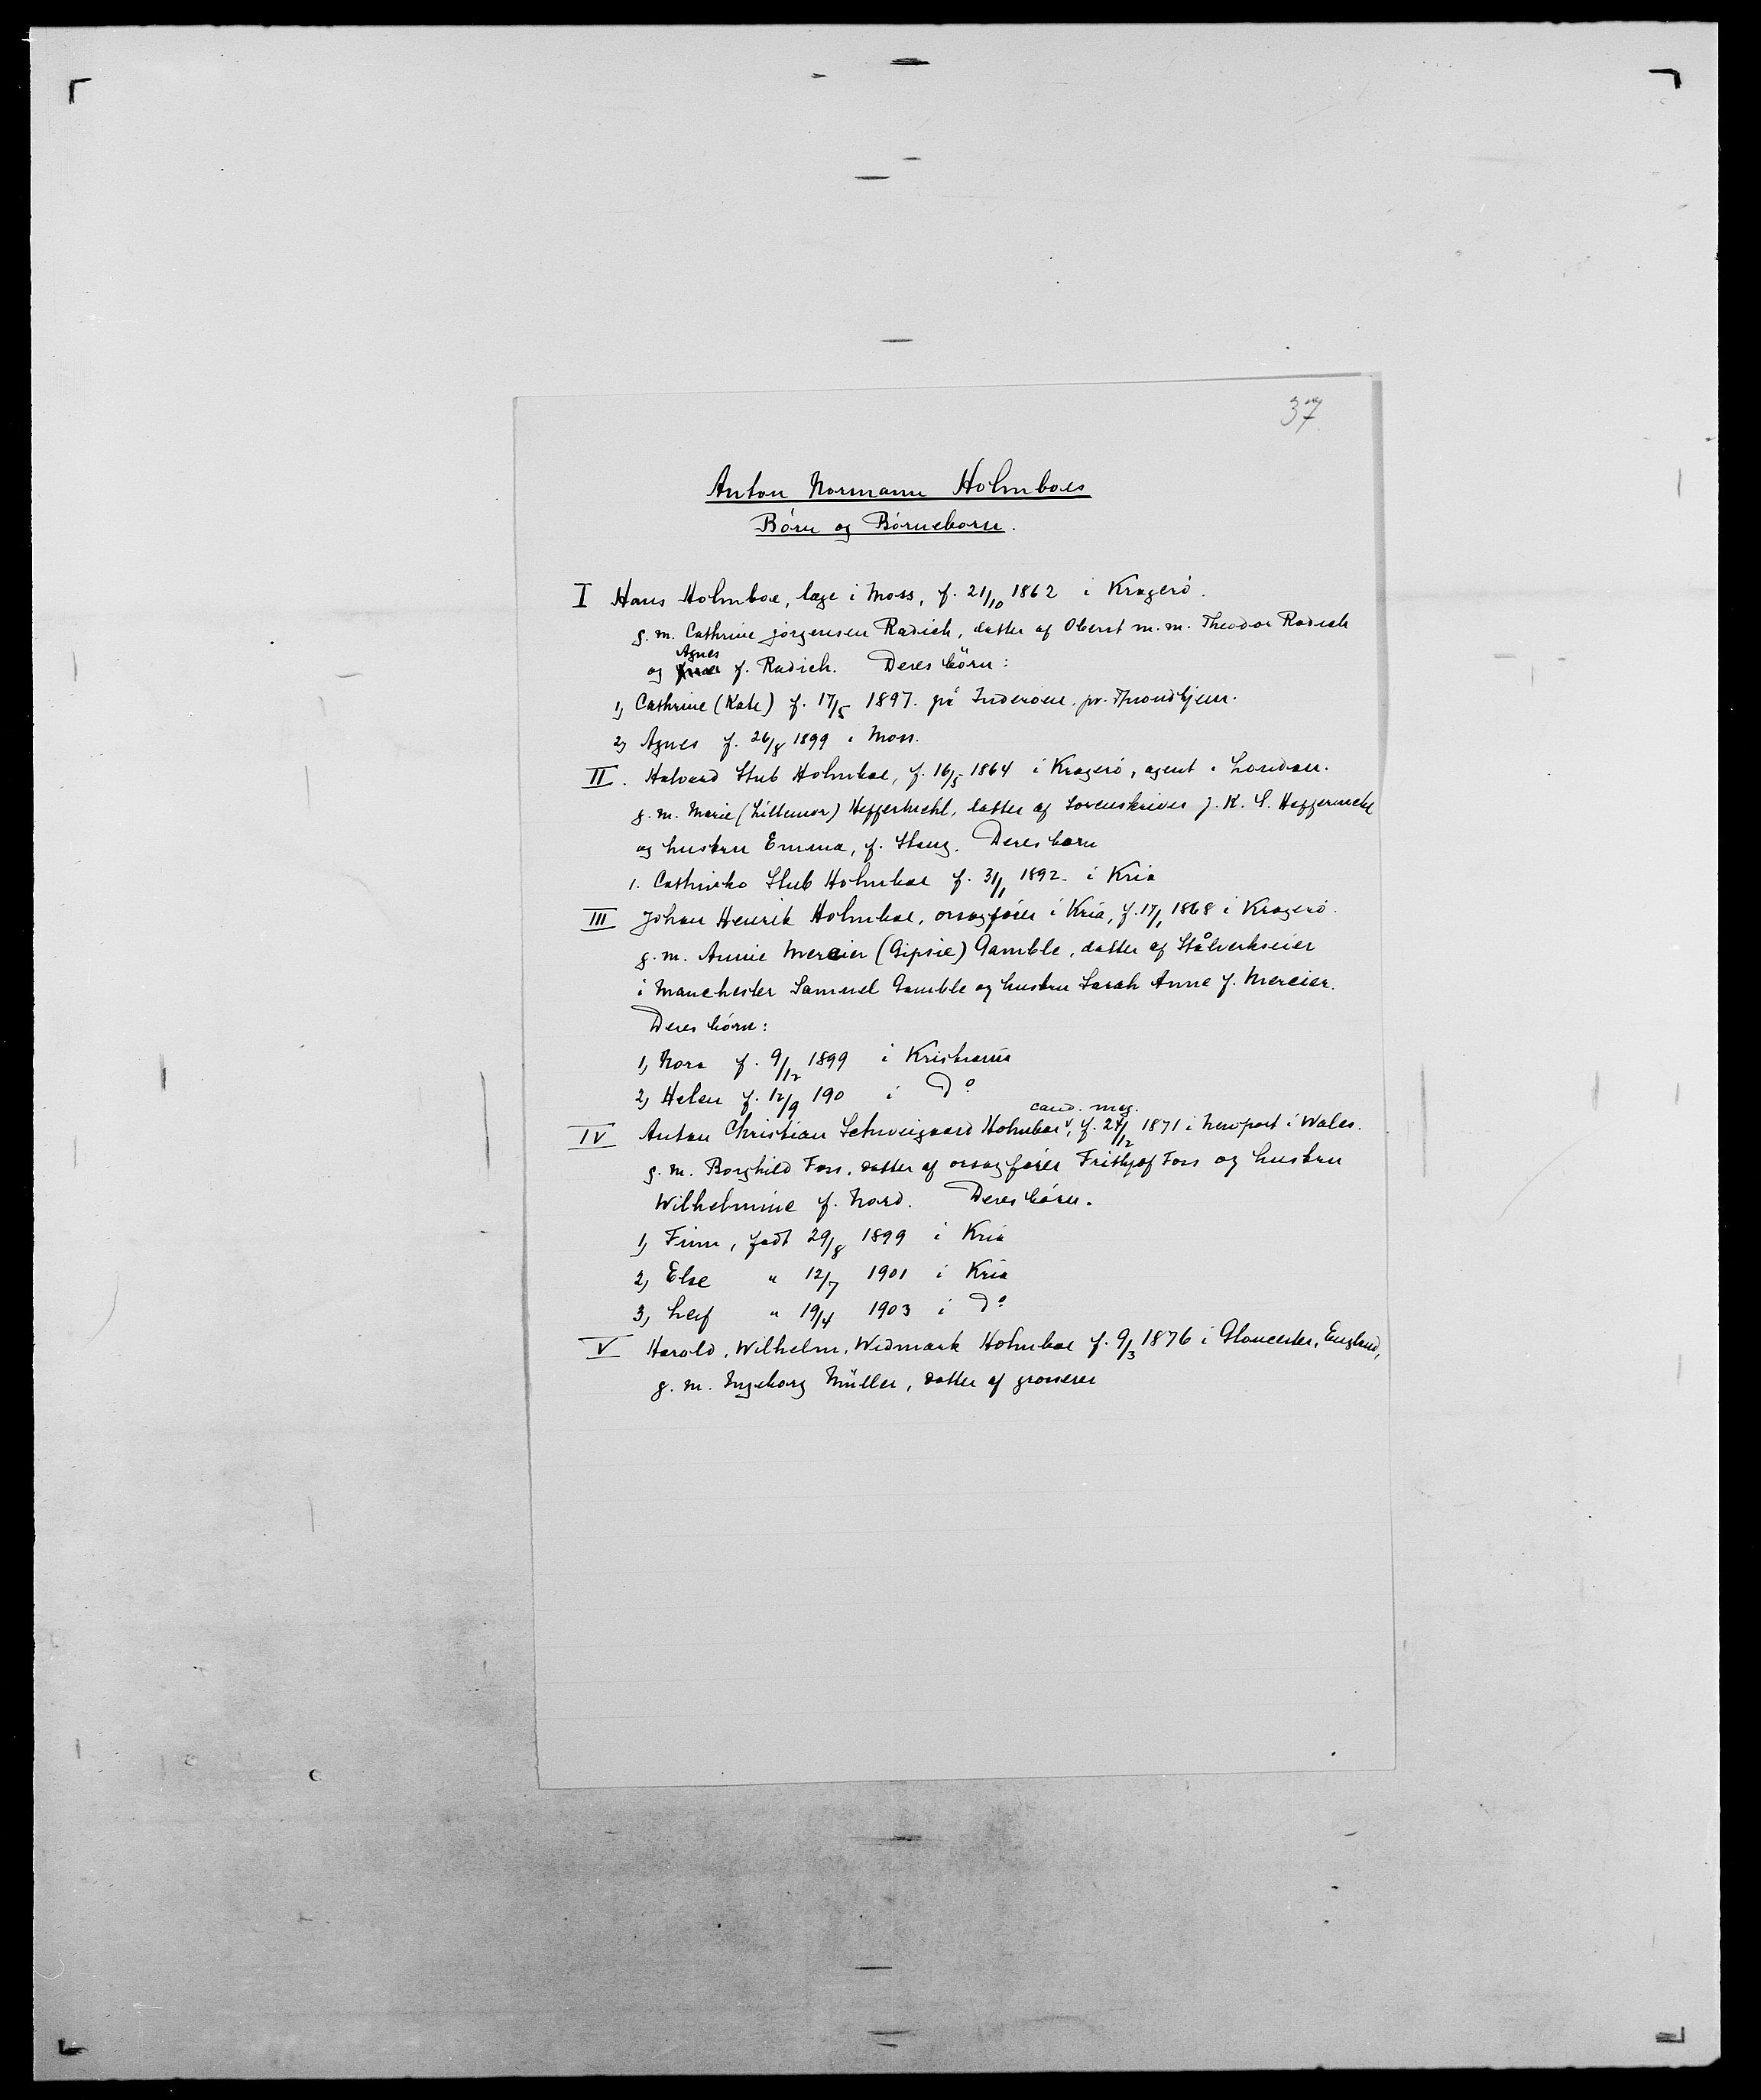 37.
Anton Normann Holmboes
Börn og Börnebörn.
I Hans Holmboe, læge i Moss, f. 21/10 1862 i Kragerö.
g. m. Cathrine Jörgensen Radich, datter af Oberst m. m. Theodor Radich
Agnes
og f. Radich. Deres börn:
1, Cathrine (Kate) f. 17/5 1897. på Inderöen, pr. Throndhjem.
2, Agnes f. 26/8 1899 i Moss.
II. Halvard Stub Holmboe, f. 16/5 1864 i Kragerö, agent i London.
g. m. Marie (Lillemor) Heffermehl, datter af Sorenskriver J. K. S. Heffermehl
og hustru Emma, f. Stang. Deres barn
1. Cathinka Stub Holmboe f. 31/1 1892. i Kria
III Johan Henrik Holmboe, orsagförer i Kria, f. 17/1 1868 i Kragerö.
g. m. Annie Mercier (Gipsie) Gamble, datter af Stålverkseier
i Manchester Samuel Gamble og hustru Sarah Anne f. Mercier.
Deres börn:
1, Nora f. 9/12 1899 i Kristiania
2, Helen f. 12/9 190 i Do
cand. mag.
IV Anton Christian Schweigaard Holmboe, f. 24/12 1871 i Newport i Wales.
g. m. Borghild Foss, datter af orsagförer Frithjof Foss og hustru
Wilhelmine f. Nord. Deres börn.
1, Finn, født 29/8 1899 i Kria
2, Else " 12/7 1901 i Kria
3, Leif " 19/4 1903 i Do
V Harold, Wilhelm, Widmark Holmboe f. 9/3 1876 i Gloucester, England,
g. m. Ingeborg Müller, datter af grosserer